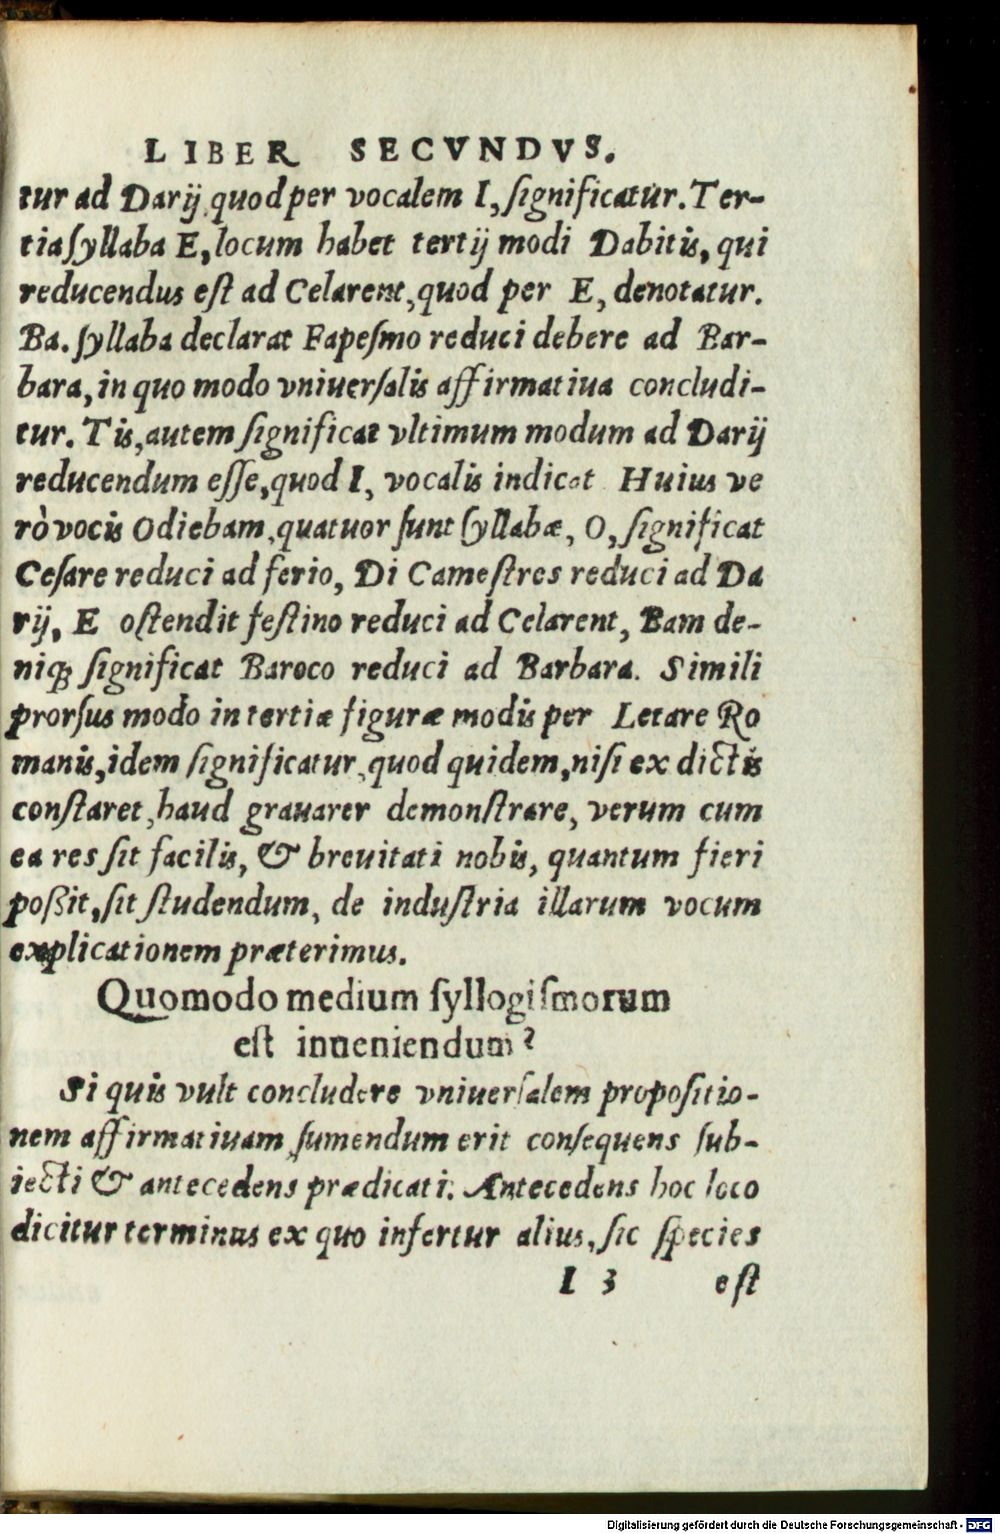 LIBER SECVNDVS.
tur ad Darij quod per vocalem I, ſignificatur. Ter-
tia ſyllaba E, locum habet tertij modi Dabitis, qui
reducendus eſt ad Celarent, quod per E, denotatur.
Ba. ſyllaba declarat Fapeſmo reduci debere ad Bar-
bara, in quo modo vniuerſalis affirmatiua concludi-
tur. Tis, autem ſignificat vltimum modum ad Darij
reducendum eſſe, quod I, vocalis indicat Huius ve
rò vocis Odiebam, quatuor ſunt ſyllabæ, O, ſignificat
Ceſare reduci ad ferio, Di Cameſtres reduci ad Da
rij, E oſtendit feſtino reduci ad Celarent, Bam de-
niq; ſignificat Baroco reduci ad Barbara. Simili
prorſus modo in tertiæ figuræ modis per Letare Ro
manis, idem ſignificatur, quod quidem, niſi ex dictis
conſtaret, haud grauarer demonſtrare, verum cum
ea res ſit facilis, & breuitati nobis, quantum fieri
poßit, ſit ſtudendum, de induſtria illarum vocum
explicationem præterimus.
Quomodo medium ſyllogiſmorum
eſt inueniendum?
Si quis vult concludere vniuerſalem propoſitio-
nem affirmatiuam ſumendum erit conſequens ſub-
iecti & antecedens prædicati. Antecedens hoc loco
dicitur terminus ex quo infertur alius, ſic ſpecies
I 3 eſt
Digitalisierung gefördert durch die Deutsche Forschungsgemeinschaft - DFG